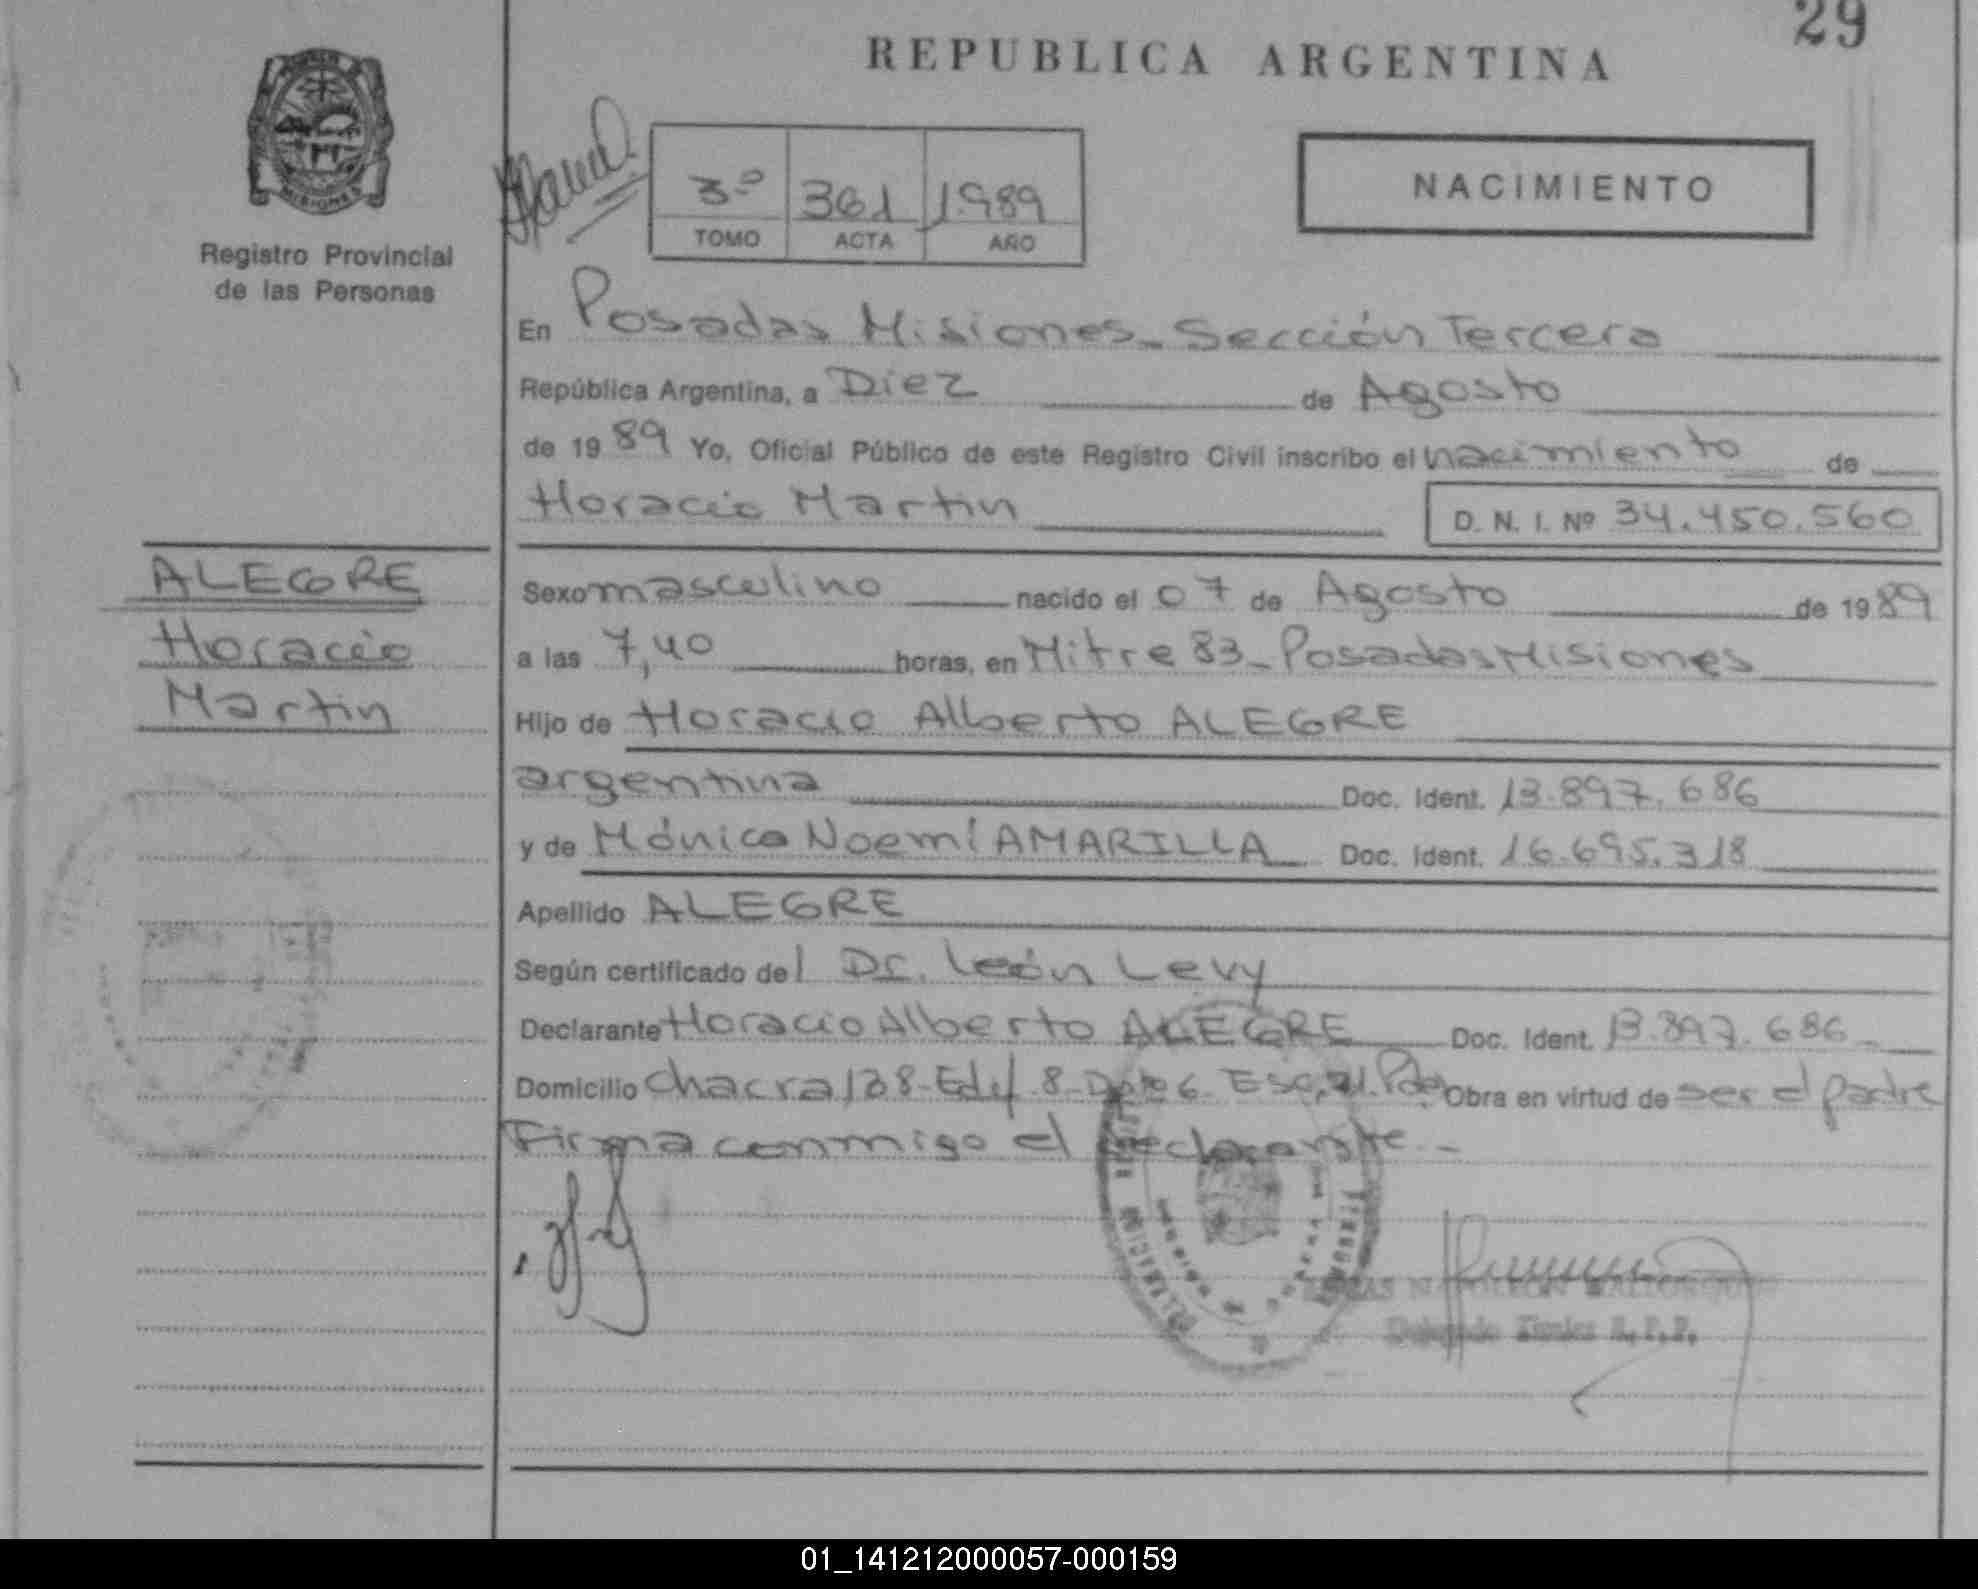 29
REPUBLICA ARGENTINA
MISIONES
Registro Provincial
de las Personas
3º 361 1989
TOMO ACTA AÑO
NACIMIENTO
En Posadas Misiones - Sección Tercera
República Argentina, a Diez de Agosto
de 1989 Yo, Oficial Público de este Registro Civil inscribo el nacimiento de
Horacio Martin D. N. I. Nº 34.450.560
ALEGRE
Horacio
Martin
Sexo masculino nacido el 07 de Agosto de 1989
a las 7,40 horas, en Mitre 83 - Posadas Misiones
Hijo de Horacio Alberto ALEGRE
argentina Doc. Ident. 13.897.686
y de Mónica Noemí AMARILLA Doc. Ident. 16.695.318
Apellido ALEGRE
Según certificado del Dr. León Levy
Declarante Horacio Alberto ALEGRE Doc. Ident. 13.897.686
Domicilio Chacra 138 - Edif. 8 - Dpto 6 Obra en virtud de ser el padre
Firma conmigo el declarante. -
NAPOLEON
R.P.P.
01_141212000057-000159